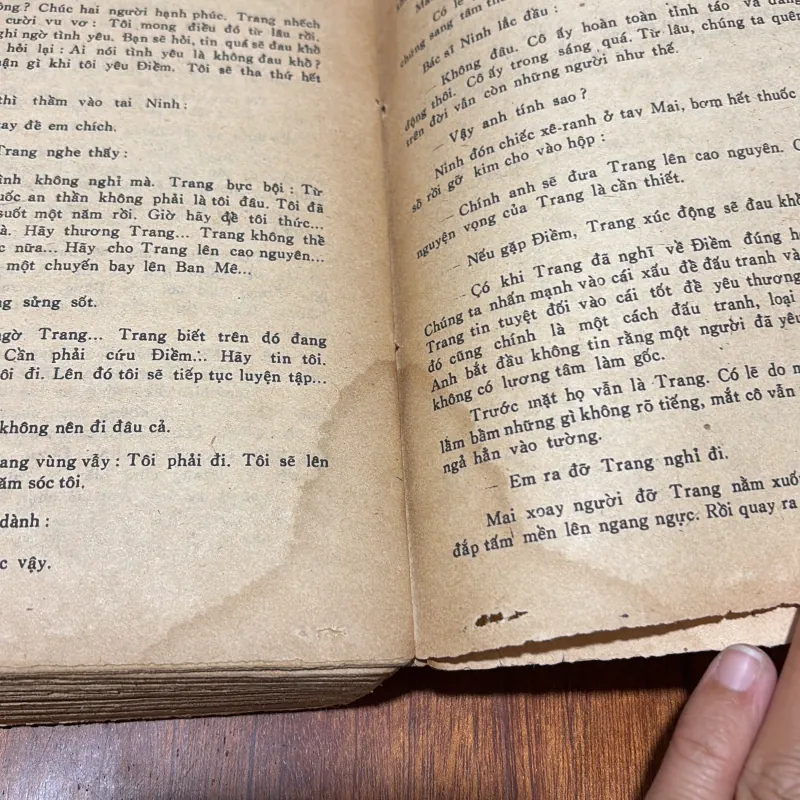 ông? Chúc hai người hạnh phúc. Trang nhếch
cười vu vơ: Tôi mong điều đó từ lâu rồi.
ghi ngờ tình yêu. Bạn sẽ hỏi, tin quá sẽ đau khổ
hỏi lại: Ai nói tình yêu là không đau khổ?
hận gì khi tôi yêu Điềm. Tôi sẽ tha thứ hết
thì thầm vào tai Ninh:
tay để em chích.
Trang nghe thấy:
không nghỉ mà. Trang bực bội: Từ
uốc an thần không phải là tôi đâu. Tôi đã
suốt một năm rồi. Giờ hãy để tôi thức...
à. Hãy thương Trang... Trang không thể
c nữa... Hãy cho Trang lên cao nguyên...
một chuyến bay lên Ban Mê...
ng sửng sốt.
ngờ Trang... Trang biết trên đó đang
Cần phải cứu Điềm... Hãy tin tôi.
ôi đi. Lên đó tôi sẽ tiếp tục luyện tập...
không nên đi đâu cả.
ang vùng vẫy: Tôi phải đi. Tôi sẽ lên
ăm sóc tôi.
dành:
c vậy.
Có lẽ
chứng tâm thần
Bác sĩ Ninh lắc đầu:
— Không đâu. Cô ấy hoàn toàn tỉnh táo và đang
động thôi. Cô ấy trong sáng quá. Từ lâu, chúng ta quên
trên đời vẫn còn những người như thế.
— Vậy anh tính sao?
Ninh đón chiếc xê-ranh ở tay Mai, bơm hết thuốc
số rồi gỡ kim cho vào hộp:
— Chính anh sẽ đưa Trang lên cao nguyên. C
nguyện vọng của Trang là cần thiết.
— Nếu gặp Điềm, Trang xúc động sẽ đau khổ
— Có khi Trang đã nghĩ về Điềm đúng hơ
Chúng ta nhấn mạnh vào cái xấu để đấu tranh và
Trang tin tuyệt đối vào cái tốt để yêu thương
đó cũng chính là một cách đấu tranh, loại
Anh bắt đầu không tin rằng một người đã yêu
không có lương tâm làm gốc.
Trước mặt họ vẫn là Trang. Có lẽ do m
lầm bầm những gì không rõ tiếng, mắt cô vẫn
ngả hẳn vào tường.
— Em ra đỡ Trang nghỉ đi.
Mai xoay người đỡ Trang nằm xuống
đắp tấm mền lên ngang ngực. Rồi quay ra